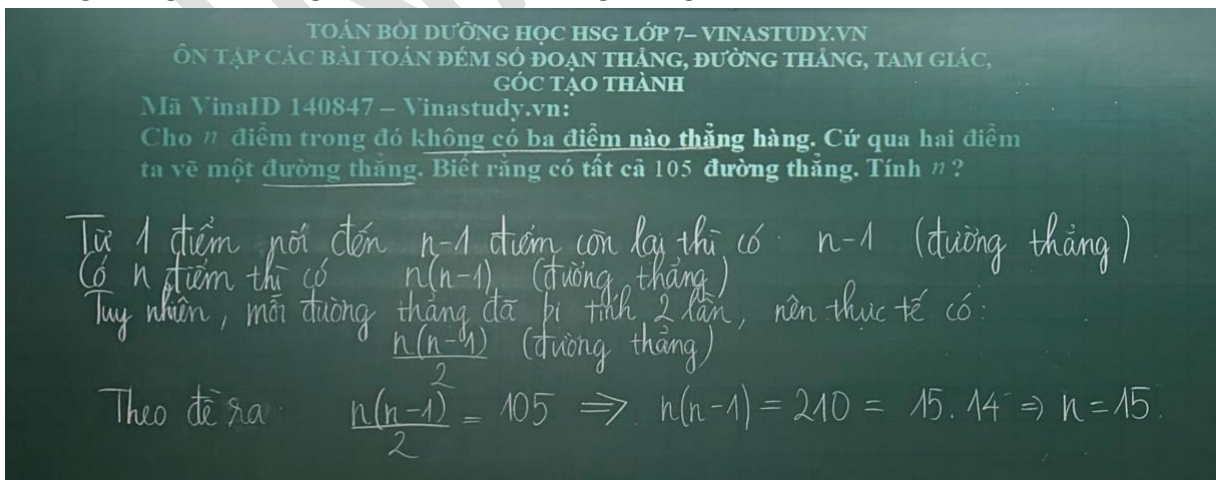 TOÁN BỒI DƯỠNG HỌC HSG LỚP 7– VINASTUDY.VN
ÔN TẬP CÁC BÀI TOÁN ĐẾM SỐ ĐOẠN THẲNG, ĐƯỜNG THẲNG, TAM GIÁC,
GÓC TẠO THÀNH
Mã VinaID 140847 – Vinastudy.vn:
Cho n điểm trong đó không có ba điểm nào thẳng hàng. Cứ qua hai điểm
ta vẽ một đường thẳng. Biết rằng có tất cả 105 đường thẳng. Tính n ?
Từ 1 điểm nối đến n-1 điểm còn lại thì có n-1 (đường thẳng)
Có n điểm thì có n(n-1) (đường thẳng)
Tuy nhiên, mỗi đường thẳng đã bị tính 2 lần, nên thực tế có:
n(n-1)/2 (đường thẳng)
Theo đề ra n(n-1)/2 = 105 => n(n-1) = 210 = 15.14 => n = 15.